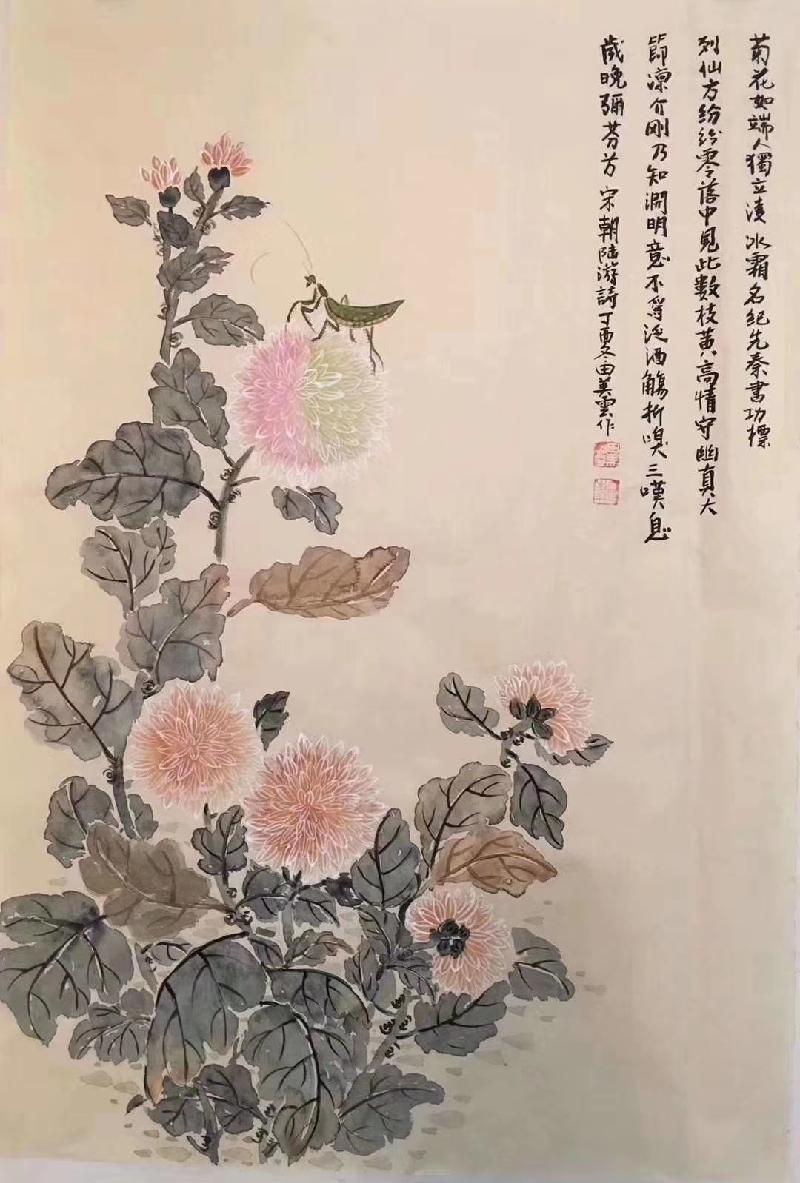 菊花如端人獨立凌冰霜名紀先秦書功標
列仙方紛紛零落中見此數枝黃高情守幽真大
節凛介剛乃知淵明意不爲泛酒觴折嗅三嘆息
歲晚彌芬芳 宋朝陸游詩丁酉冬由美雲作